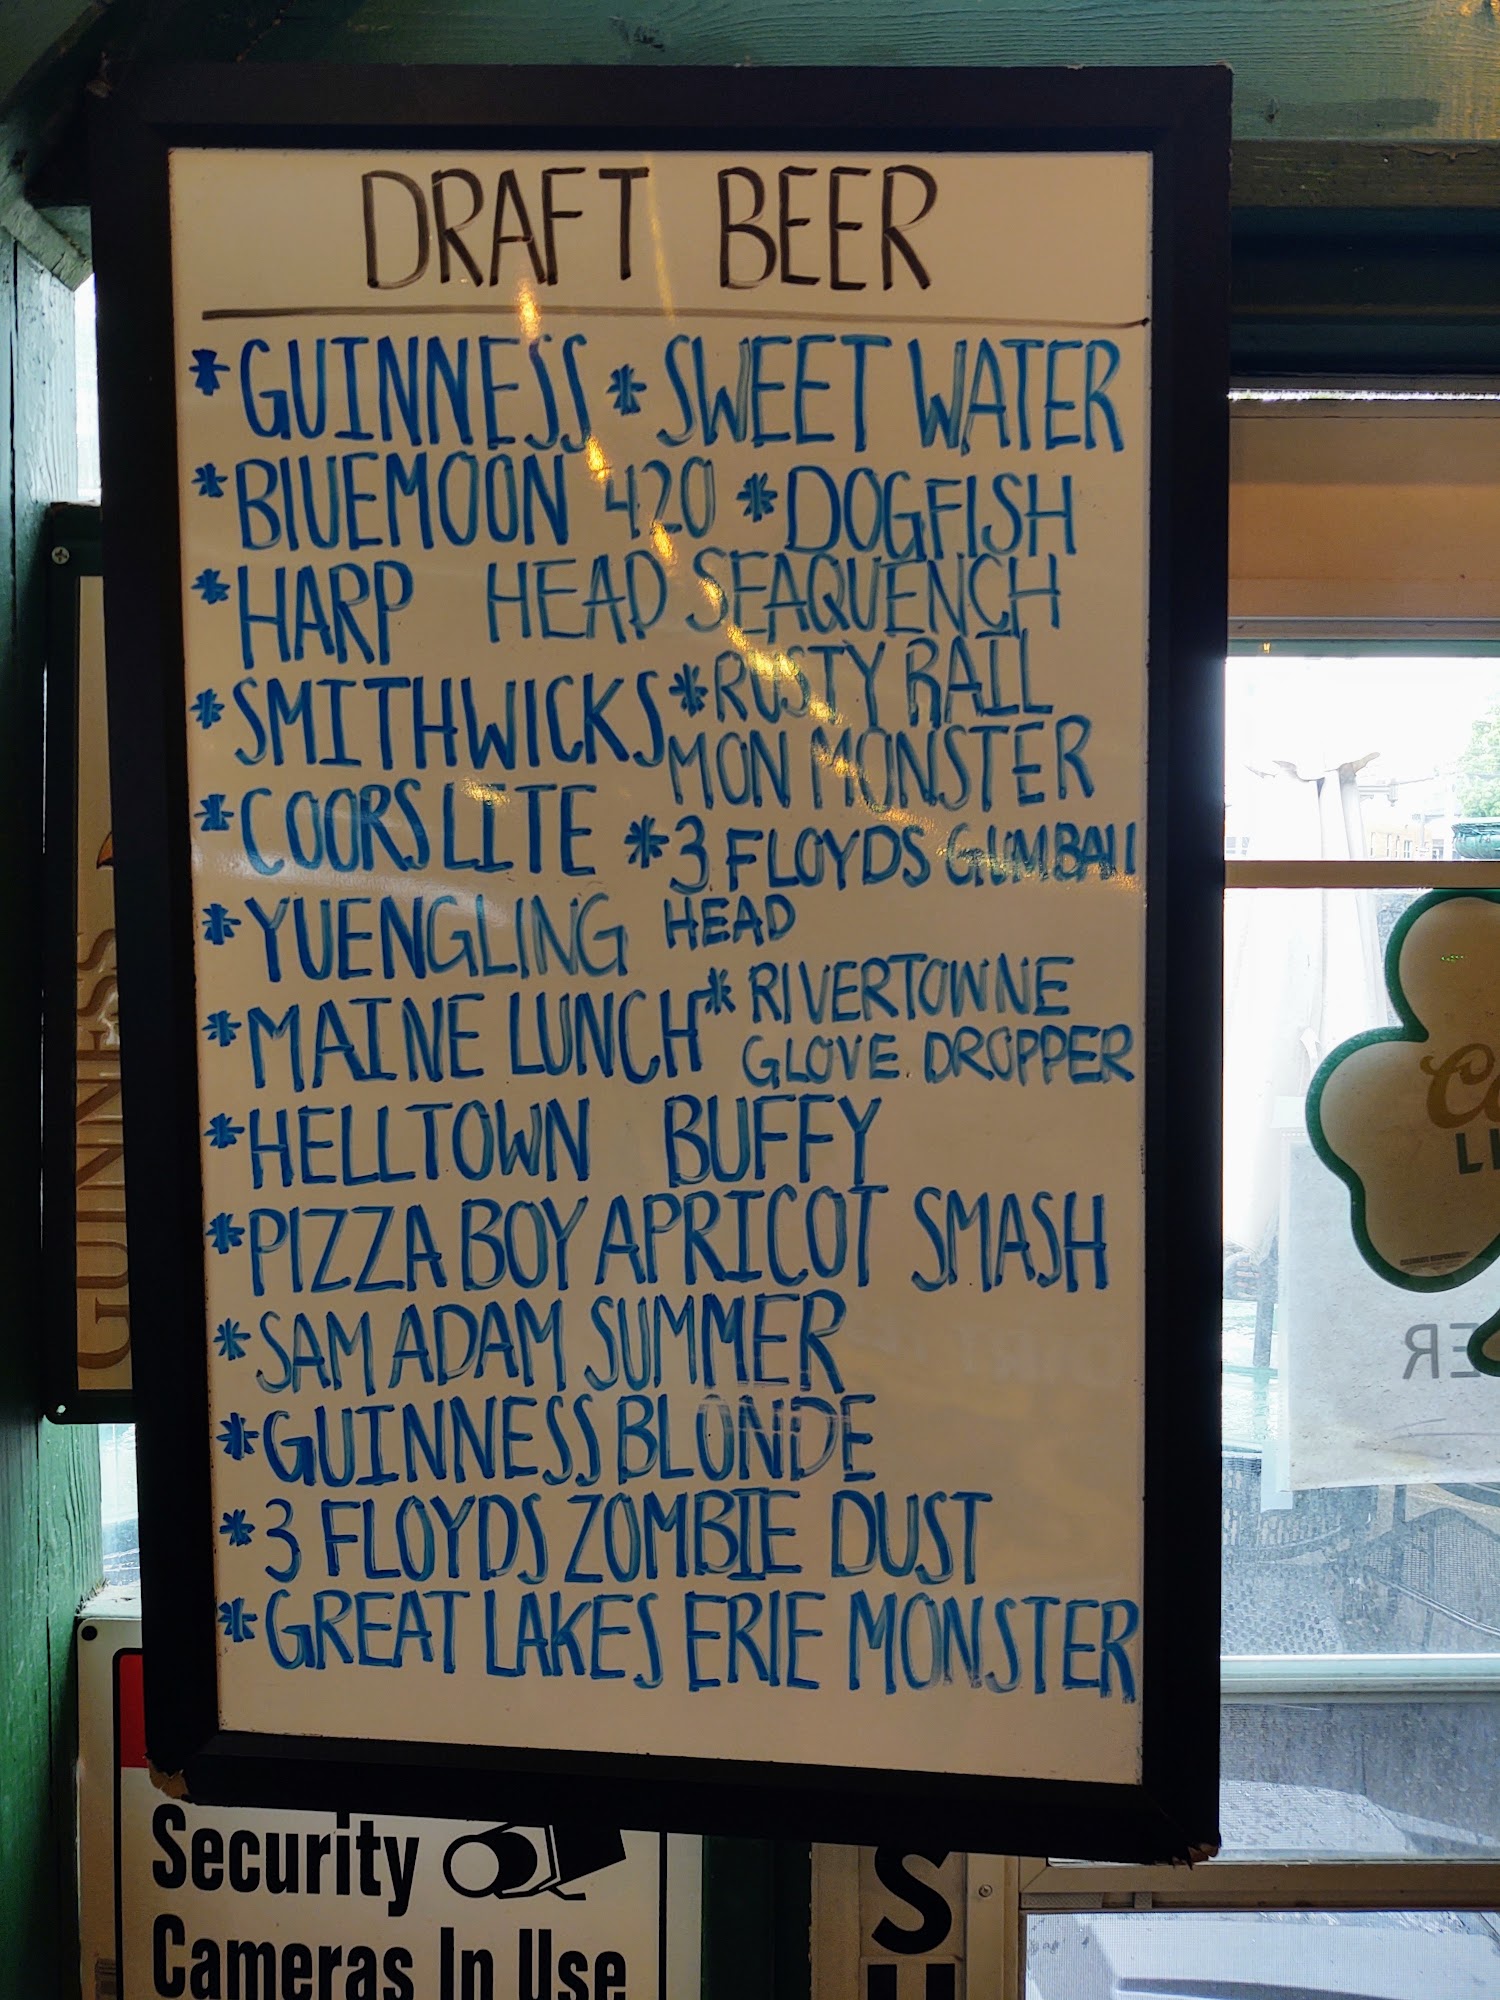 DRAFT BEER
*GUINNESS *SWEET WATER
*BLUEMOON 420 *DOGFISH
*HARP HEAD SEAQUENCH
*SMITHWICKS *RUSTY RAIL
MON MONSTER
*COORS LITE *3 FLOYDS GUMBALL
*YUENGLING HEAD
*MAINE LUNCH *RIVERTOWNE
GLOVE DROPPER
*HELLTOWN BUFFY
*PIZZA BOY APRICOT SMASH
*SAM ADAM SUMMER
*GUINNESS BLONDE
*3 FLOYDS ZOMBIE DUST
*GREAT LAKES ERIE MONSTER
GUINNESS
Security
Cameras In Use